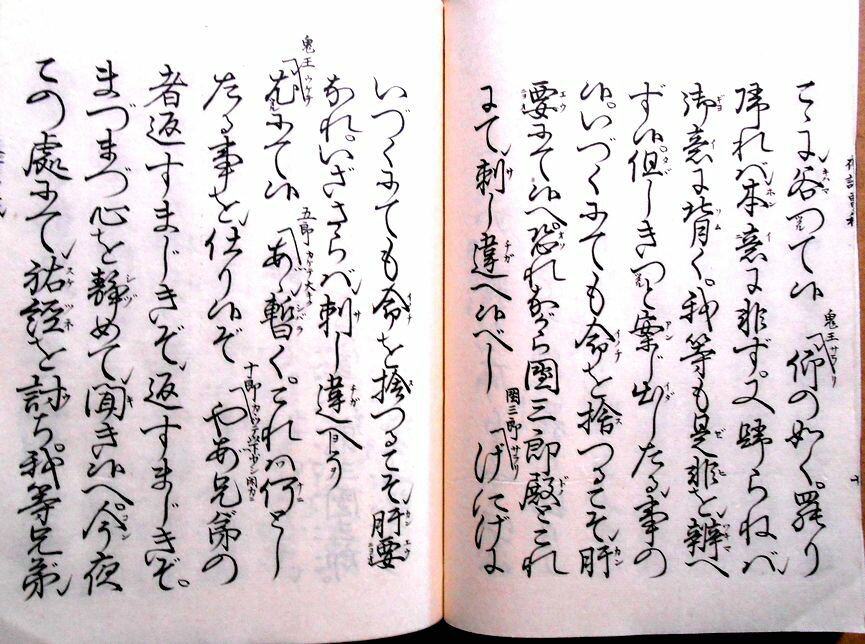 こゝに谷つて候「仰の如く。罷り
鬼王 サラリ
帰れバ本意に非ず。又帰らねバ
御意に背く。我等も是非を辨へ
ず候。但しきつと案じ出したる事の
候。いづくにても命を捨つるこそ肝
要にて候へ。恐れながら團三郎殿とこれ
にて。刺し違へ候べし「げにげに
團三郎 サラリ
いづくにても命を捨つるこそ。肝要
なれ。いざさらバ刺し違へう
鬼王
尤にて候「あゝ暫く。これハ何とし
五郎
たる事を仕り候ぞ「やあ兄弟の
十郎
者返すまじきぞ。返すまじきぞ。
まづまづ心を静めて聞き候へ。今夜
この處にて祐經を討ち。我等兄弟